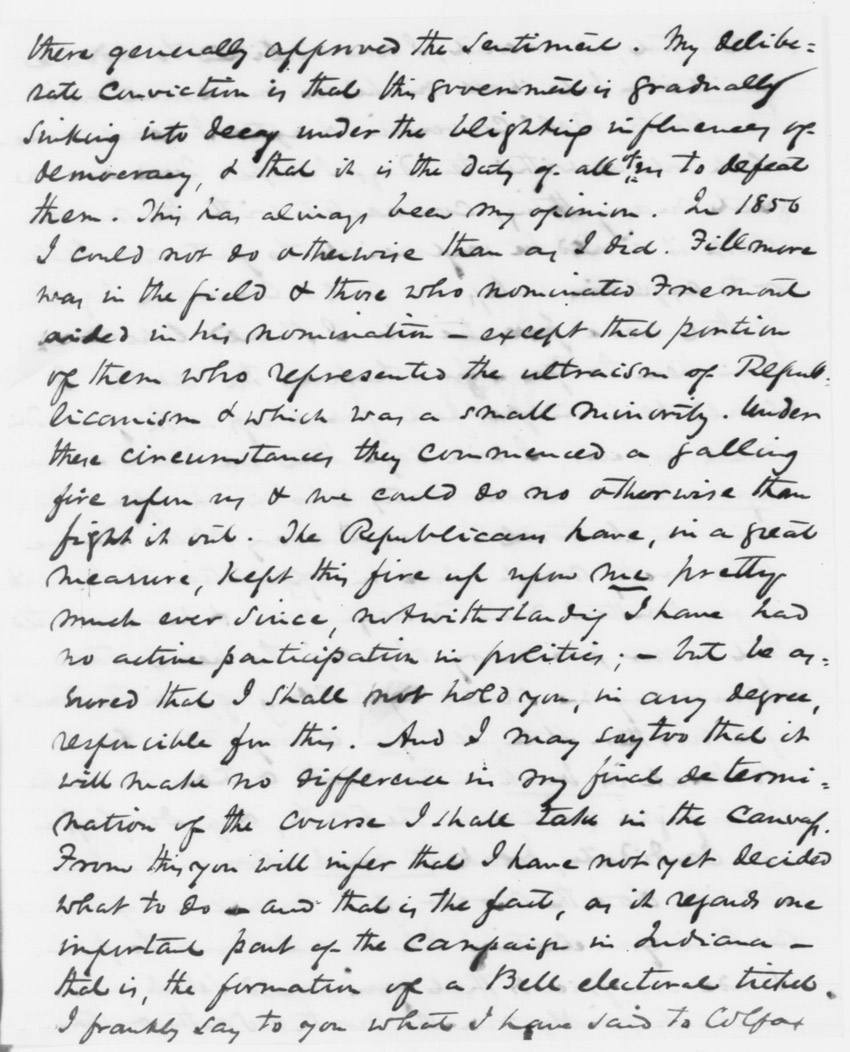 there generally approved the sentiment. My delibe=
rate conviction is that this government is gradually
sinking into decay under the blighting influences of
democracy, & that it is the duty of all of us to defeat
them. This has always been my opinion. In 1856
I could not do otherwise than as I did. Fillmore
was in the field & those who nominated Fremont
aided in his nomination – except that portion
of them who represented the ultraism of Repub-
licanism & which was a small minority. Under
these circumstances they commenced a galling
fire upon us & we could do no otherwise than
fight it out. The Republicans have, in a great
measure, kept this fire up upon me pretty
much ever since, notwithstanding I have had
no active participation in politics; – but be as=
sured that I shall not hold you, in any degree,
responcible for this. And I may say too that it
will make no difference in my final determi=
nation of the course I shall take in the canvass.
From this you will infer that I have not yet decided
what to do – and that is the fact, as it regards one
important part of the campaign in Indiana –
that is, the formation of a Bell electoral ticket.
I frankly say to you what I have said to Colfax